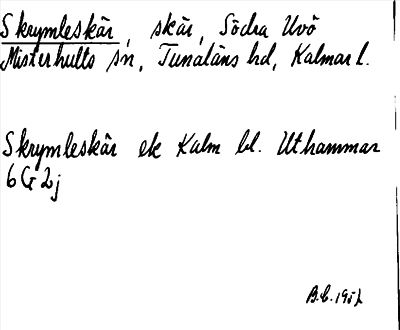 Skrymleskär, skär, Södra Uvö
Misterhults sn, Tunaläns hd, Kalmar l.
Skrymleskär ek Kalm bl. Uthammar
6G2j
B.E. 1952